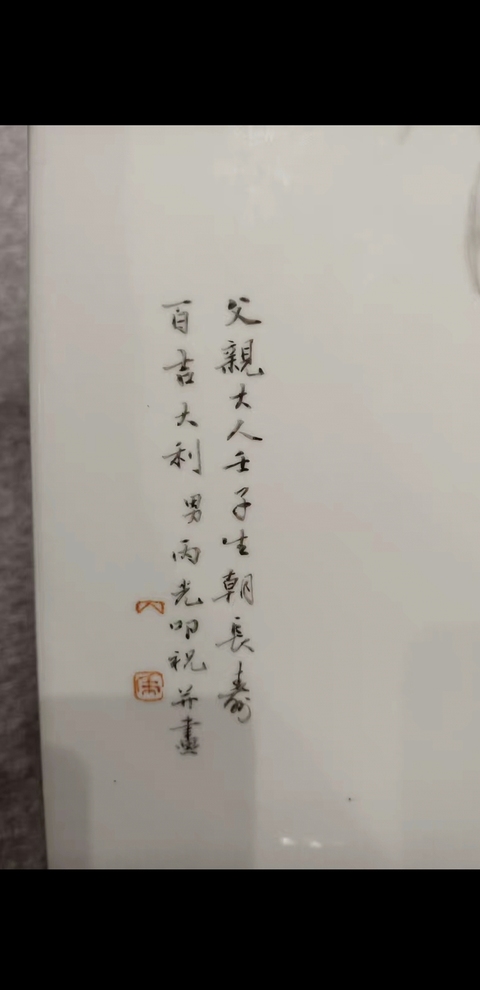 父親大人壬子生朝長壽
百吉大利男丙光叩祝並畫